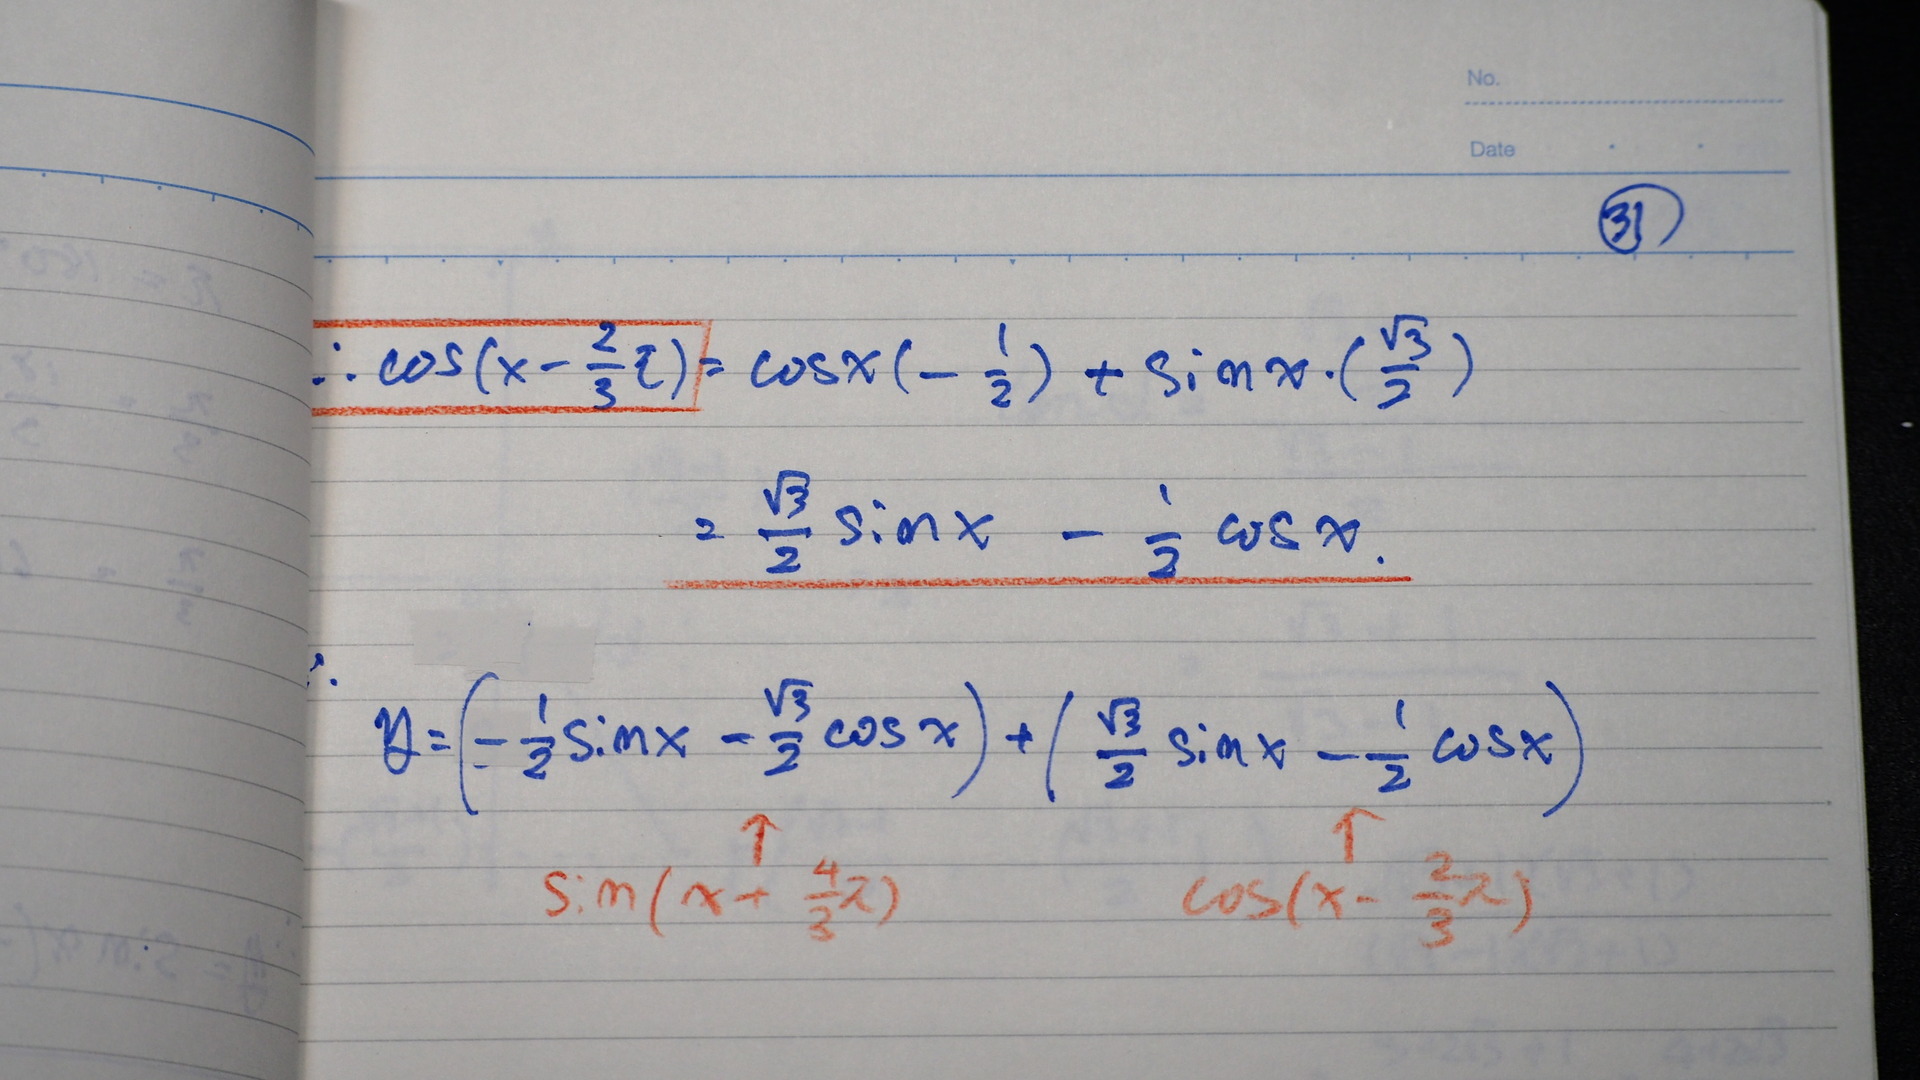 No.
Date
31
∴ cos(x - 2/3 π) = cosx(- 1/2) + sinx・(√3/2)
= √3/2 sinx - 1/2 cosx.
∴
y = (- 1/2 sinx - √3/2 cosx) + (√3/2 sinx - 1/2 cosx)
↑ ↑
sin(x + 4/3 π) cos(x - 2/3 π)